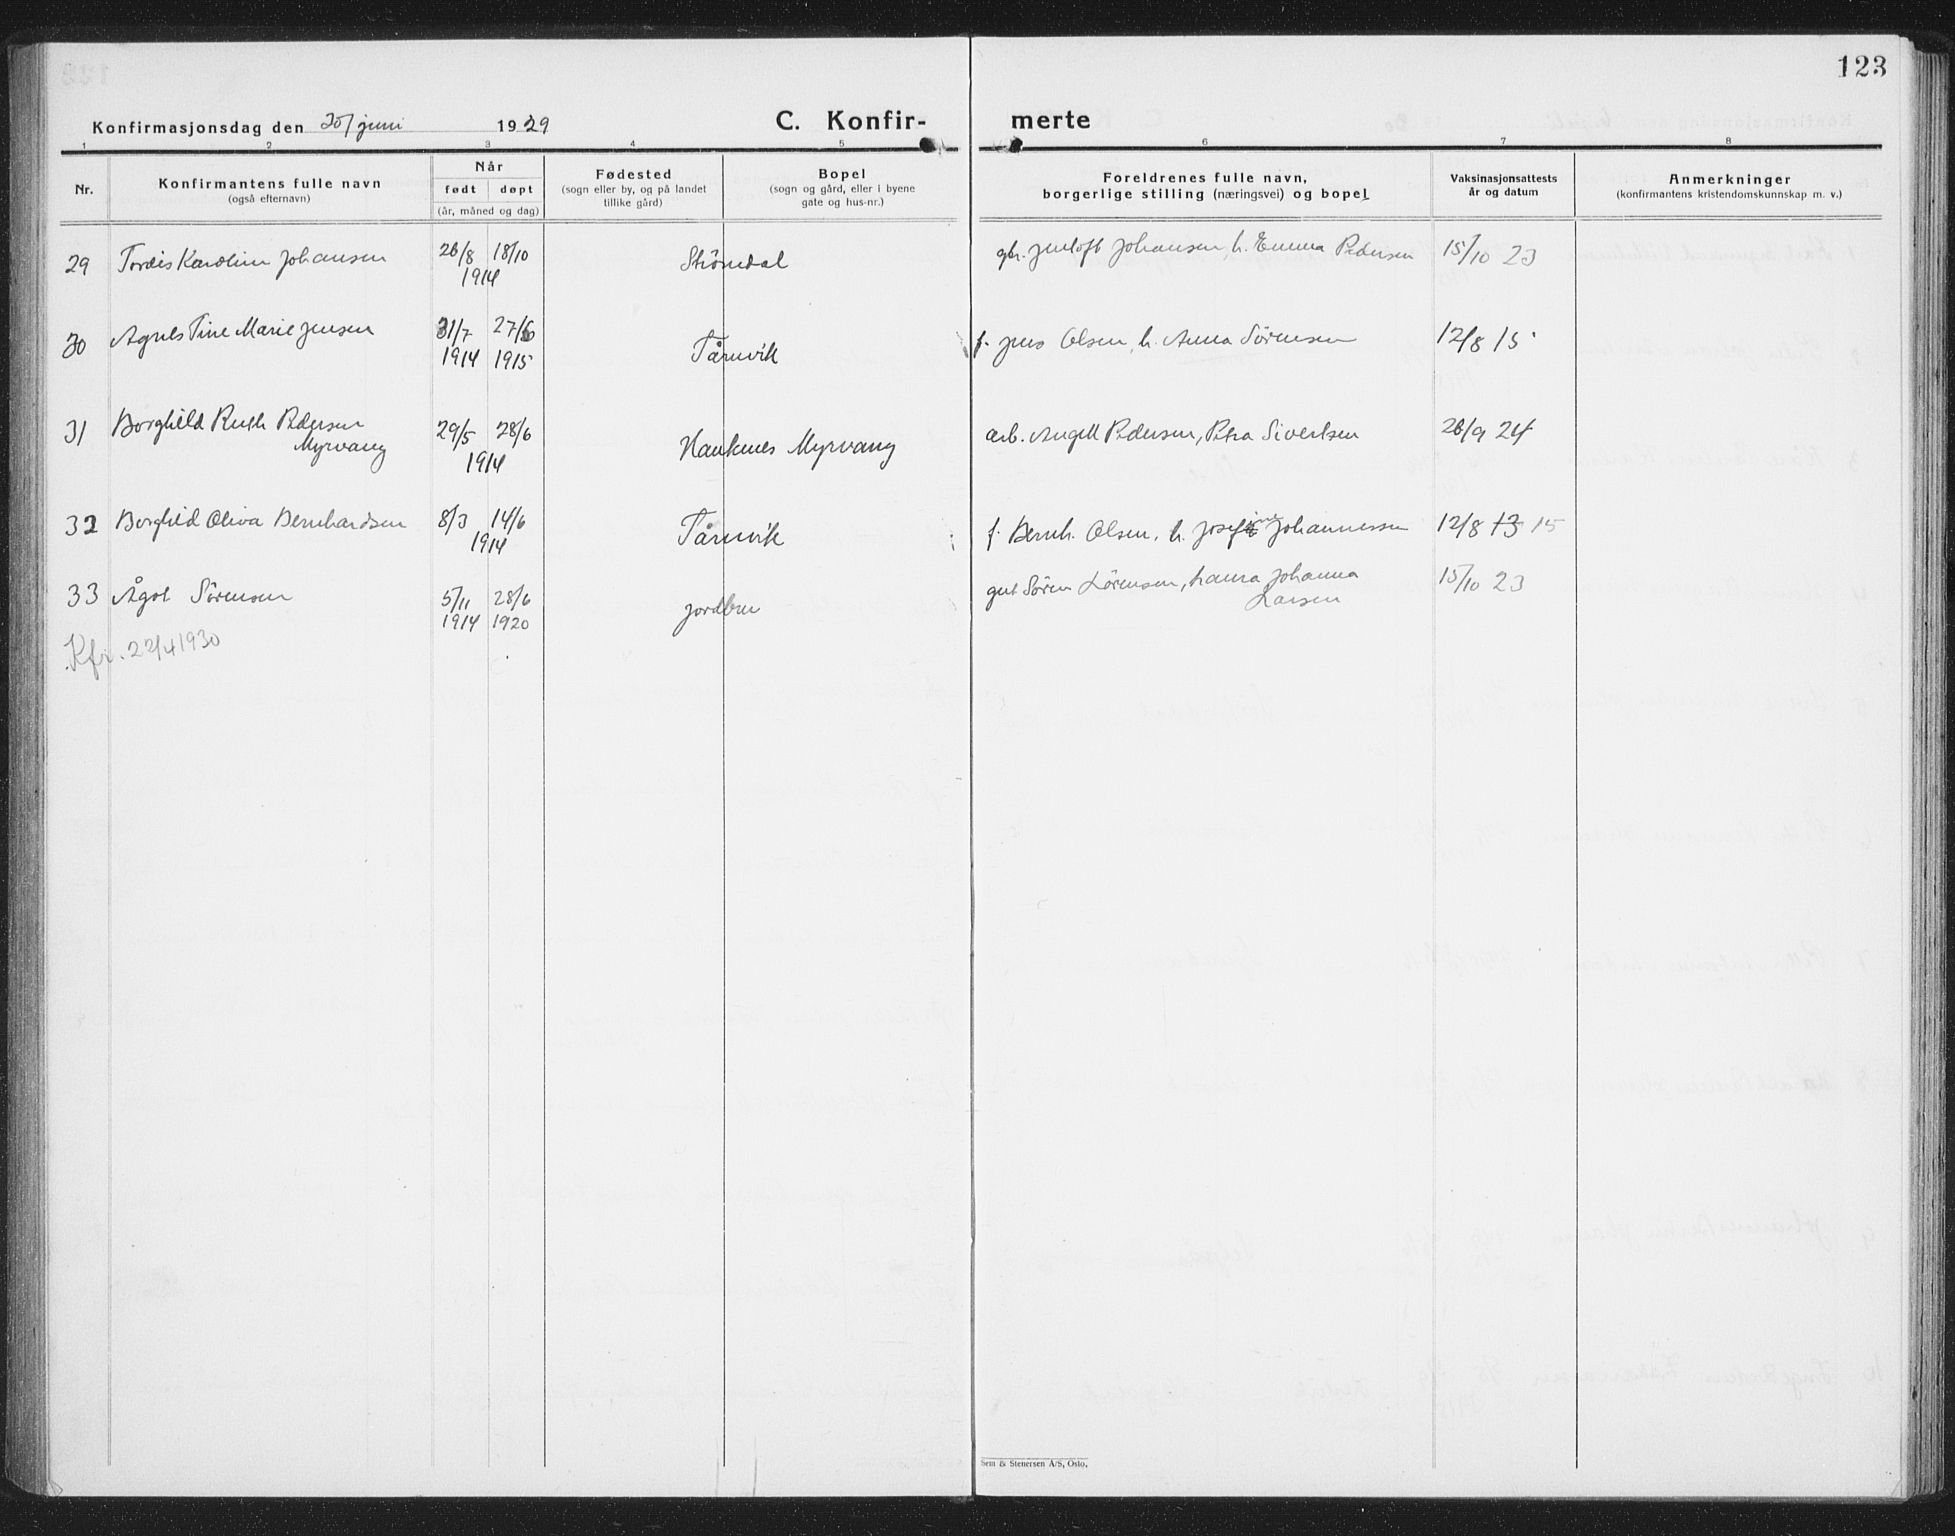 123
Konfirmasjonsdag den 30/ juni 1929
C. Konfir-
merte
1 2 3 4 5 6 7 8
Nr.
Konfirmantens fulle navn
(også efternavn)
Når
født døpt
(år, måned og dag)
Fødested
(sogn eller by, og på landet
tillike gård)
Bopel
(sogn og gård, eller i byene
gate og hus-nr.)
Foreldrenes fulle navn,
borgerlige stilling (næringsvei) og bopel
Vaksinasjonsattests
år og datum
Anmerkninger
(konfirmantens kristendomskunnskap m. v.)
29 Tordis Karoline Johansen 26/8 18/10 Strömdal gbr. Jentoft Johansen, h. Emma Pedersen 15/10 23
1914
30 Agnes Tine Marie Jensen 31/7 27/6 Tårnvik f. Jens Olsen, h. Anna Sörensen 12/8 15
1914 1915
31 Borghild Ruth Pedersen 29/5 28/6 Hauknes Myrvang arb. Angell Pedersen, Petra Sivertsen 26/9 24
Myrvang 1914
32 Borghild Oliva Bernhardsen 8/3 14/6 Tårnvik f. Bernh. Olsen, h. Josefine Johannessen 12/8 13 15
1914
33 Ågot Sörensen 5/11 28/6 Jordbru Sören Sörensen, Laura Johanna 15/10 23
1914 1920 Larsen
Kfr. 22/4 1930
Sem & Stenersen A/S, Oslo.